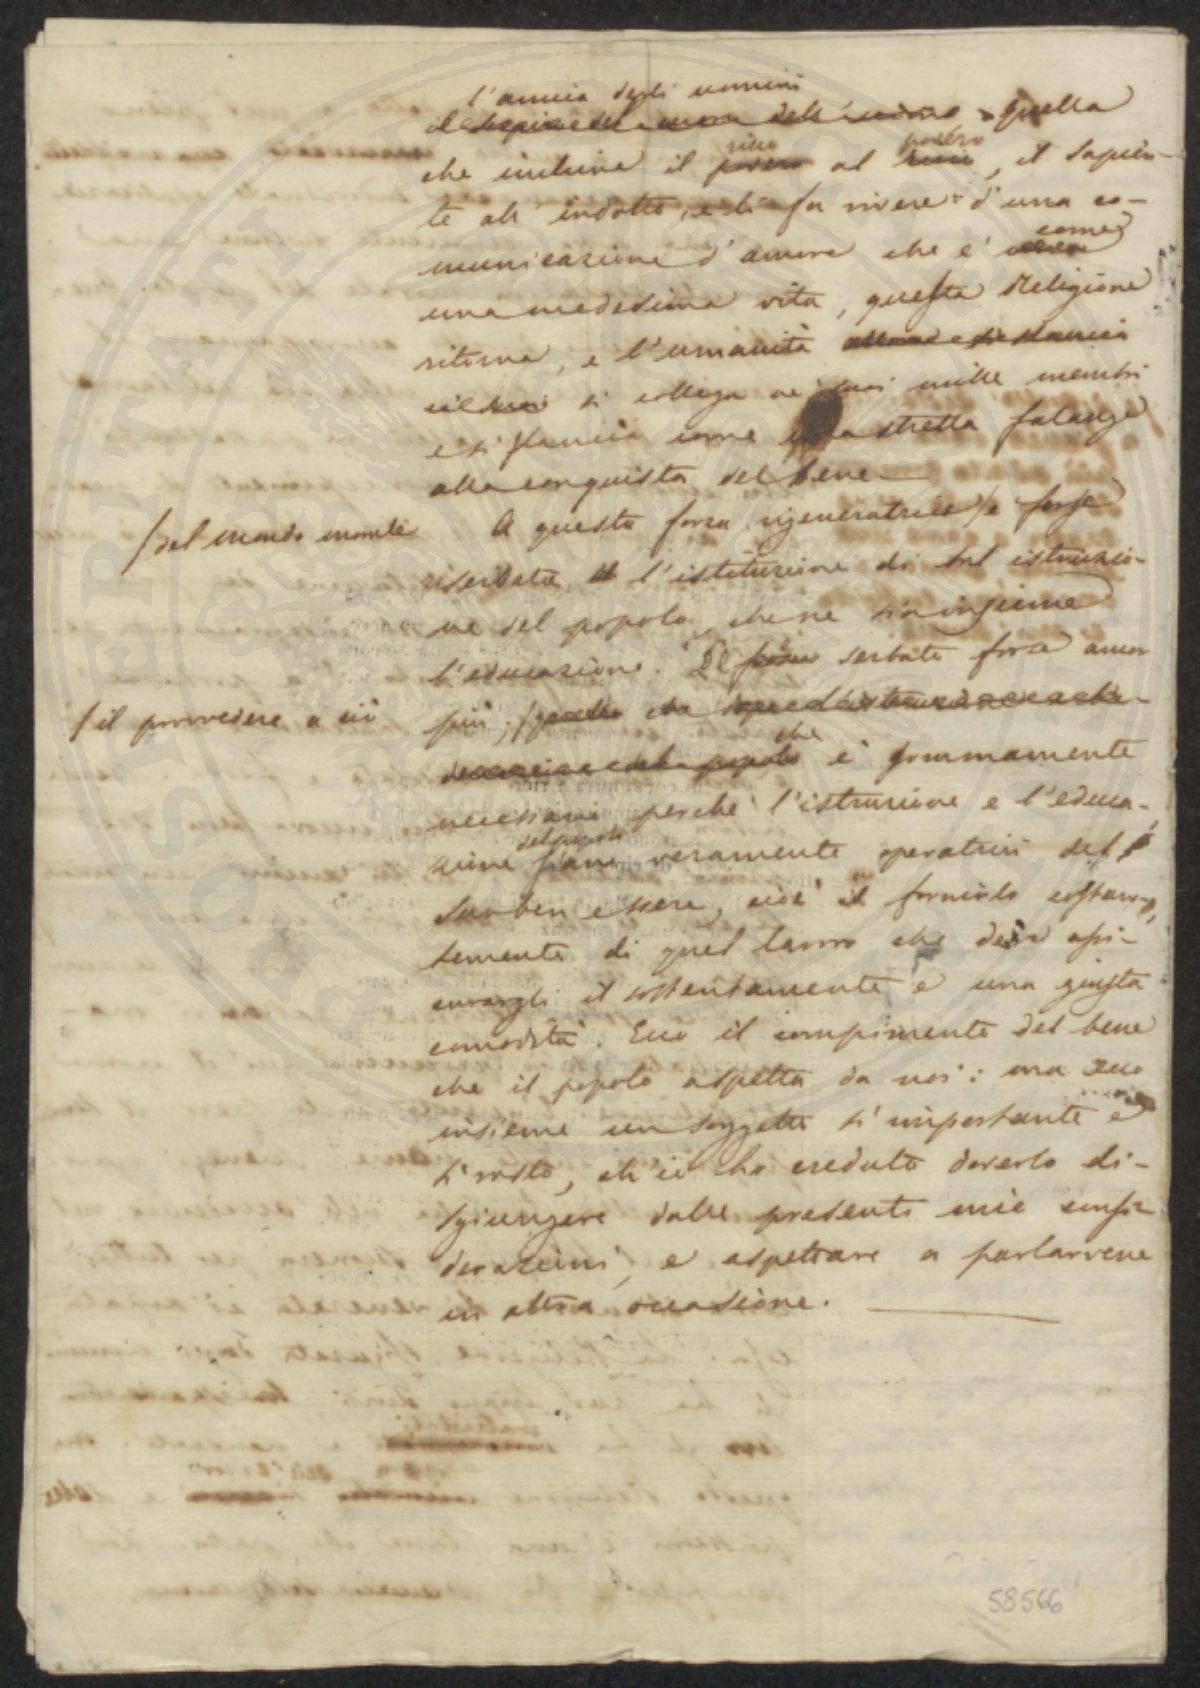 l'amica degli uomini
il quella
ricco povero
che inclina il povero al ricco, il sapien-
te all'indotto, e li fa vivere d'una co-
come
municazione d'amore che è
una medesima vita, questa Religione
ritorna, e l'umanità
si collega ne' suoi mille membri
e si slancia come una stretta falange
alla conquista del bene.—
/del mondo morale A questa forza rigeneratrice / è forse
riserbata l'istituzione di istruzio-
ne del popolo, che ne sia insieme
l'educazione. serbata forse ancor
/il provvedere a ciò più, /quella
che
del popolo è sommamente
necessario perchè l'istruzione e l'educa-
del popolo
zione siano veramente operatrici del
suo ben essere, cioè il fornirlo costan-
temente di quel lavoro che deve assi-
curargli il sostentamento e una giusta
comodità. Ecco il compimento del bene
che il popolo aspetta da noi: ma ecco
insieme un soggetto sì importante e
sì vasto, ch'io ho creduto doverlo di-
sgiungere dalle presenti mie consi-
derazioni, e aspettare a parlarvene
in altra occasione.
58566